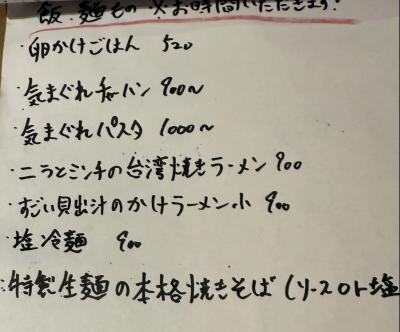 飯・麺もの ※お時間いただきます!
・卵かけごはん 520
・気まぐれチャーハン 900〜
・気まぐれパスタ 1000〜
・ニラとミンチの台湾焼きラーメン 900
・すごい貝出汁のかけラーメン小 900
・塩冷麺 900
・特製生麺の本格焼きそば(ソースor塩